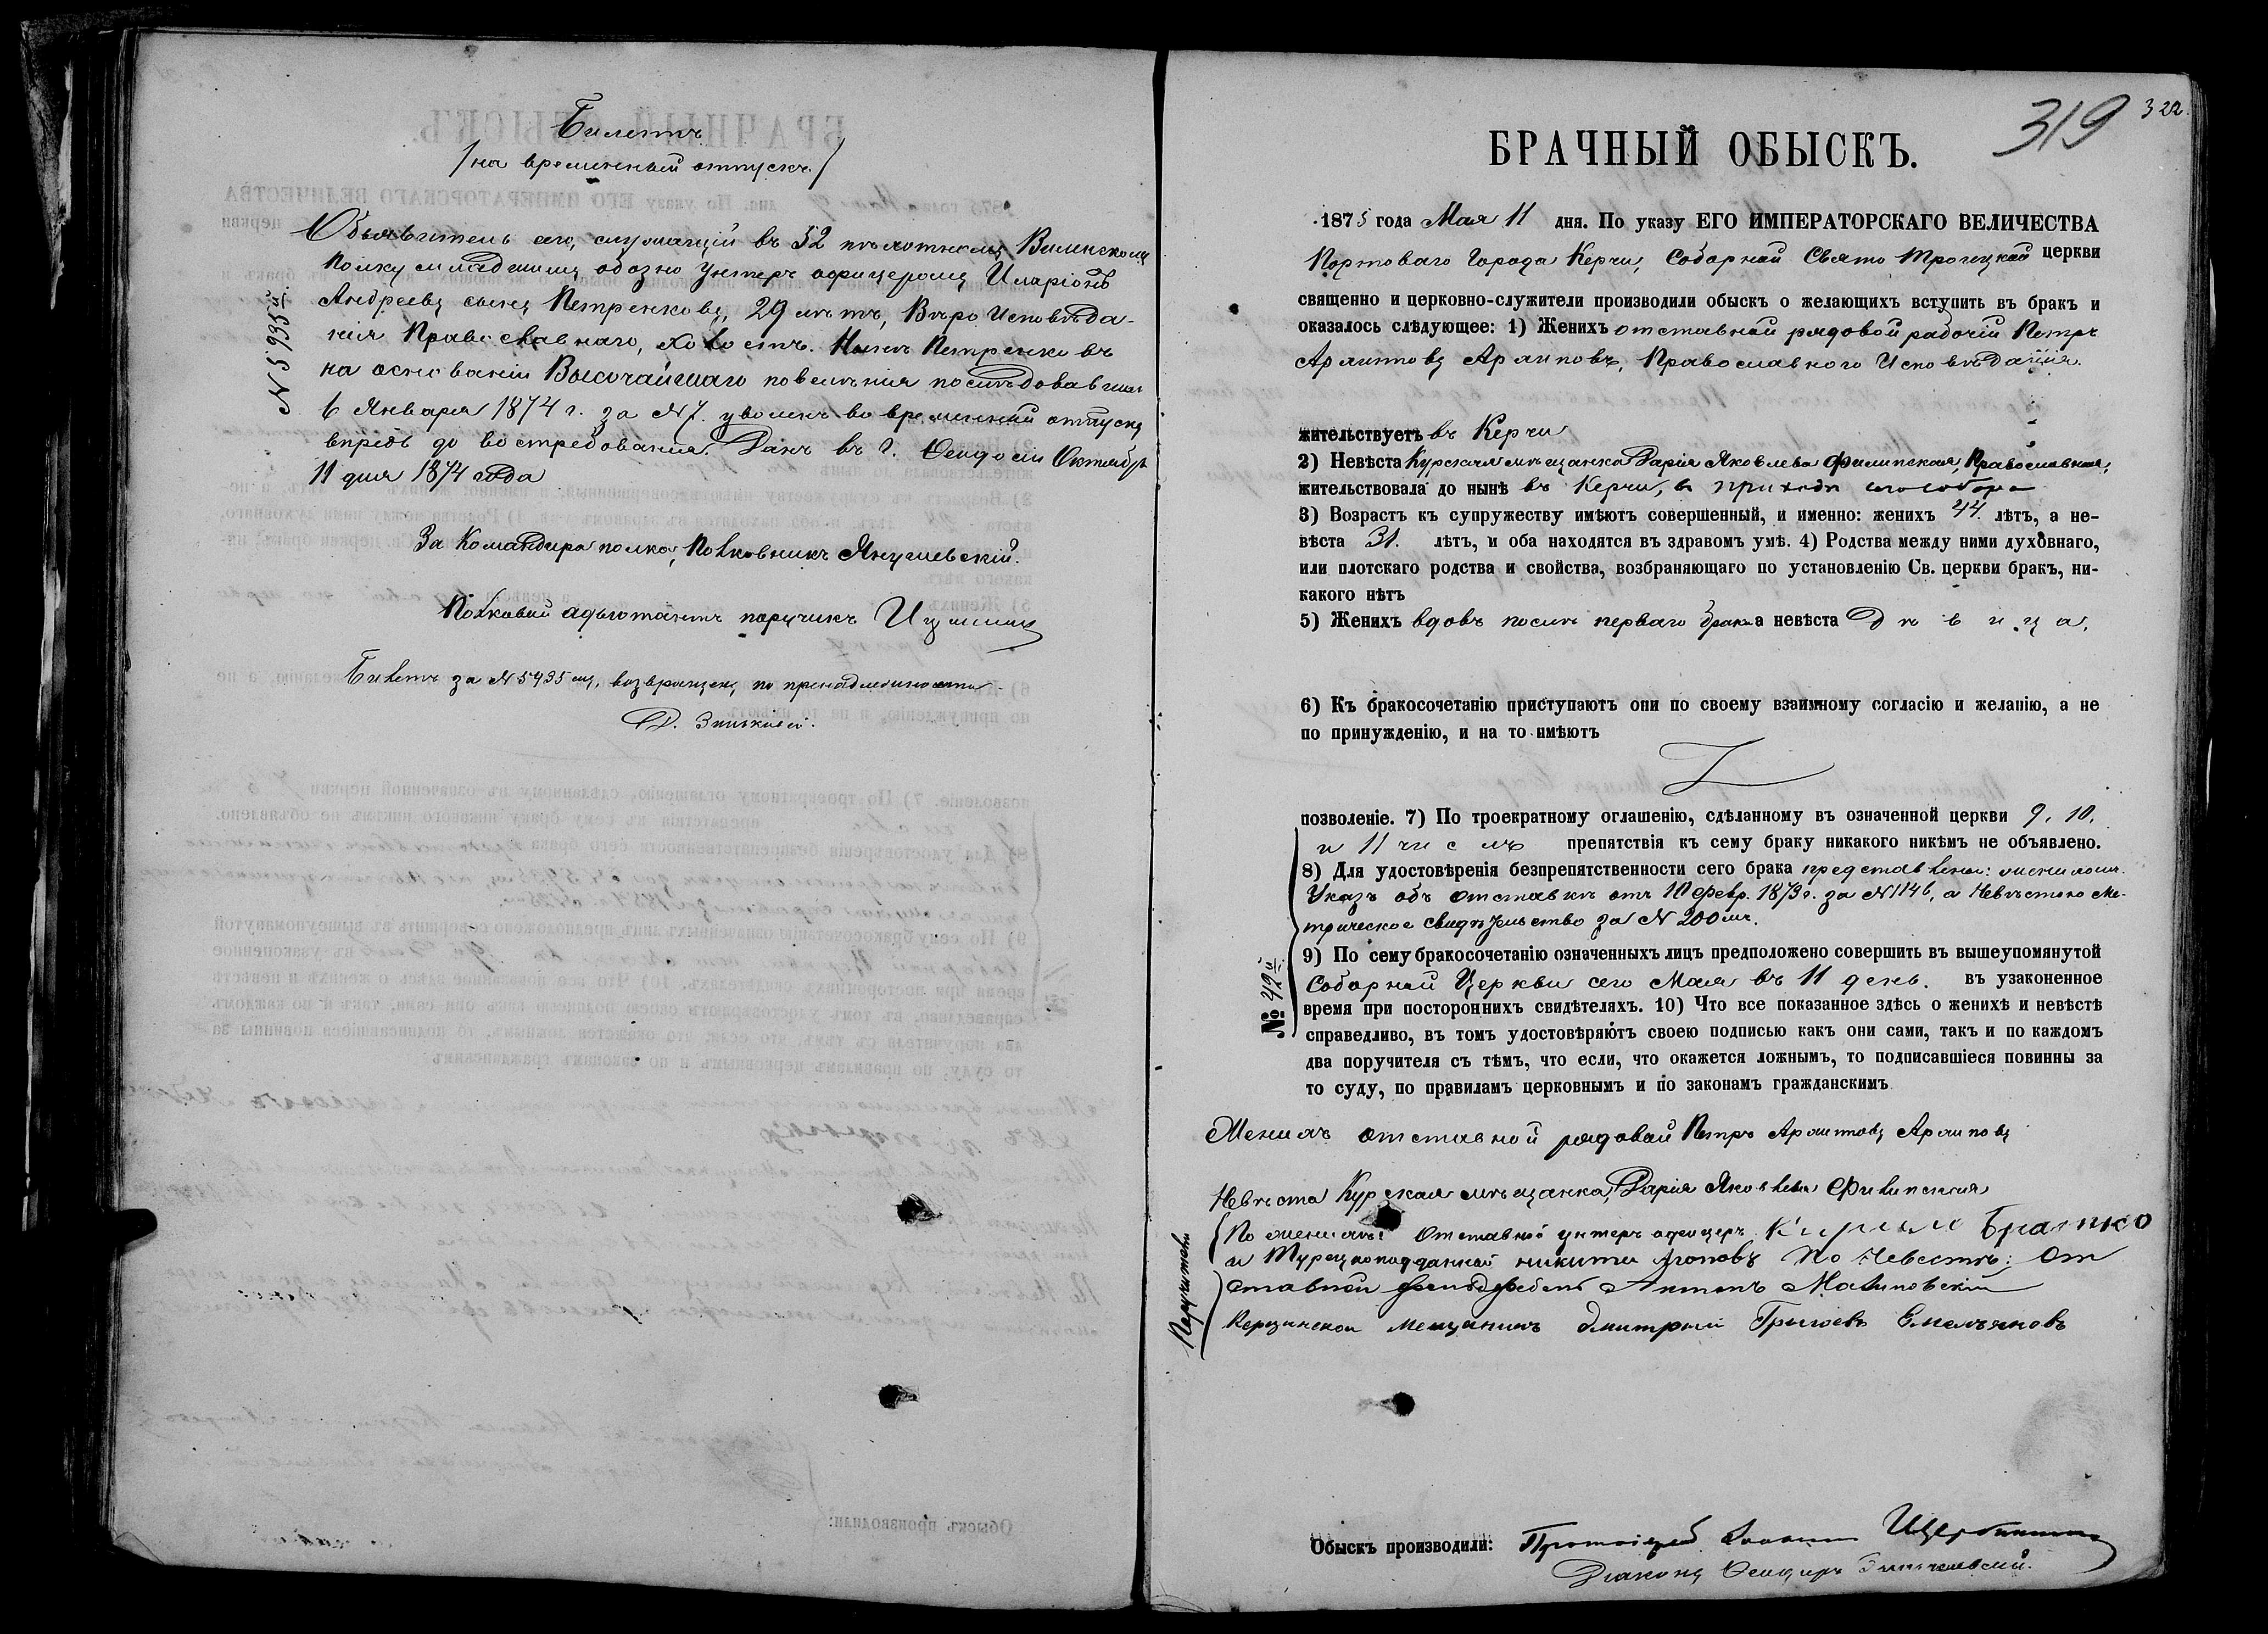 Билетъ
/на временный отпускъ./
№ 5935й.
Объявитель сего, служащій въ 52 пѣхотномъ Виленскомъ
полку младшимъ обозно унтеръ офицеромъ Иларіонъ
Андреевъ сынъ Петренковъ, 29 лѣтъ, Вѣро Исповѣда-
нія Православнаго, холостъ. Нынѣ Петренковъ
на основаніи Высочайшаго повелѣнія послѣдовавшаго
6 Января 1874 г. за №7. уволенъ во временный отпускъ
впредь до востребованія. Данъ въ г. Ѳеодосіи Октября
11 дня 1874 года
За Командира полка, Полковникъ Янушевскій.
Полковой адъютантъ поручикъ
Билетъ за №5935мъ, возвращенъ по принадлежности
319
322
БРАЧНЫЙ ОБЫСКЪ.
1875 года Мая 11 дня. По указу ЕГО ИМПЕРАТОРСКАГО ВЕЛИЧЕСТВА
Портоваго Города Керчи, Соборной Свято Троицкой церкви
священно и церковно-служители производили обыскъ о желающихъ вступить въ бракъ и
оказалось слѣдующее: 1) Женихъ отставной рядовой рабочій Петръ
Архиповъ, Православного Исповѣданія.
жительствуетъ въ Керчи
2) Невѣста Курская мѣщанка Дарія Яковлева Филипская, Православная,
жительствовала до нынѣ въ Керчи, въ приходѣ сего собора
3) Возрастъ къ супружеству имѣютъ совершенный, и именно: женихъ 44 лѣтъ, а не-
вѣста 31. лѣтъ, и оба находятся въ здравомъ умѣ. 4) Родства между ними духовнаго,
или плотскаго родства и свойства, возбраняющаго по установленію Св. церкви бракъ, ни-
какого нѣтъ
5) Женихъ вдовъ послѣ перваго брака а невѣста дѣвица,
6) Къ бракосочетанію приступаютъ они по своему взаимному согласію и желанію, а не
по принужденію, и на то имѣютъ
позволеніе. 7) По троекратному оглашенію, сдѣланному въ означенной церкви 9, 10,
и 11 числъ препятствія къ сему браку никакого никѣмъ не объявлено.
8) Для удостовѣренія безпрепятственности сего брака представлены: женихомъ
Указъ объ отставкѣ отъ 10 февр. 1873 г. за №1146, а Невѣстою Ме-
трическое свидѣтельство за № 200мъ.
9) По сему бракосочетанію означенныхъ лицъ предположено совершить въ вышеупомянутой
Соборной Церкви сего Мая въ 11 день. въ узаконенное
время при постороннихъ свидѣтеляхъ. 10) Что все показанное здѣсь о женихѣ и невѣстѣ
справедливо, въ томъ удостовѣряютъ своею подписью какъ они сами, такъ и по каждомъ
два поручителя съ тѣмъ, что если, что окажется ложнымъ, то подписавшіеся повинны за
то суду, по правиламъ церковнымъ и по законамъ гражданскимъ
№ 42й
Женихъ отставной рядовой Петръ Архиповъ
Невѣста Курская мѣщанка, Дарія Яковлева Филипская
Поручители
По женихѣ: Отставной унтеръ офицеръ Братко
и Турецкоподданной никита Агоповъ По Невестѣ: От
ставной Антонъ Малиновскій
мещанинъ дмитрый Емельяновъ
Обыскъ производили: Протоіерей
Діаконъ